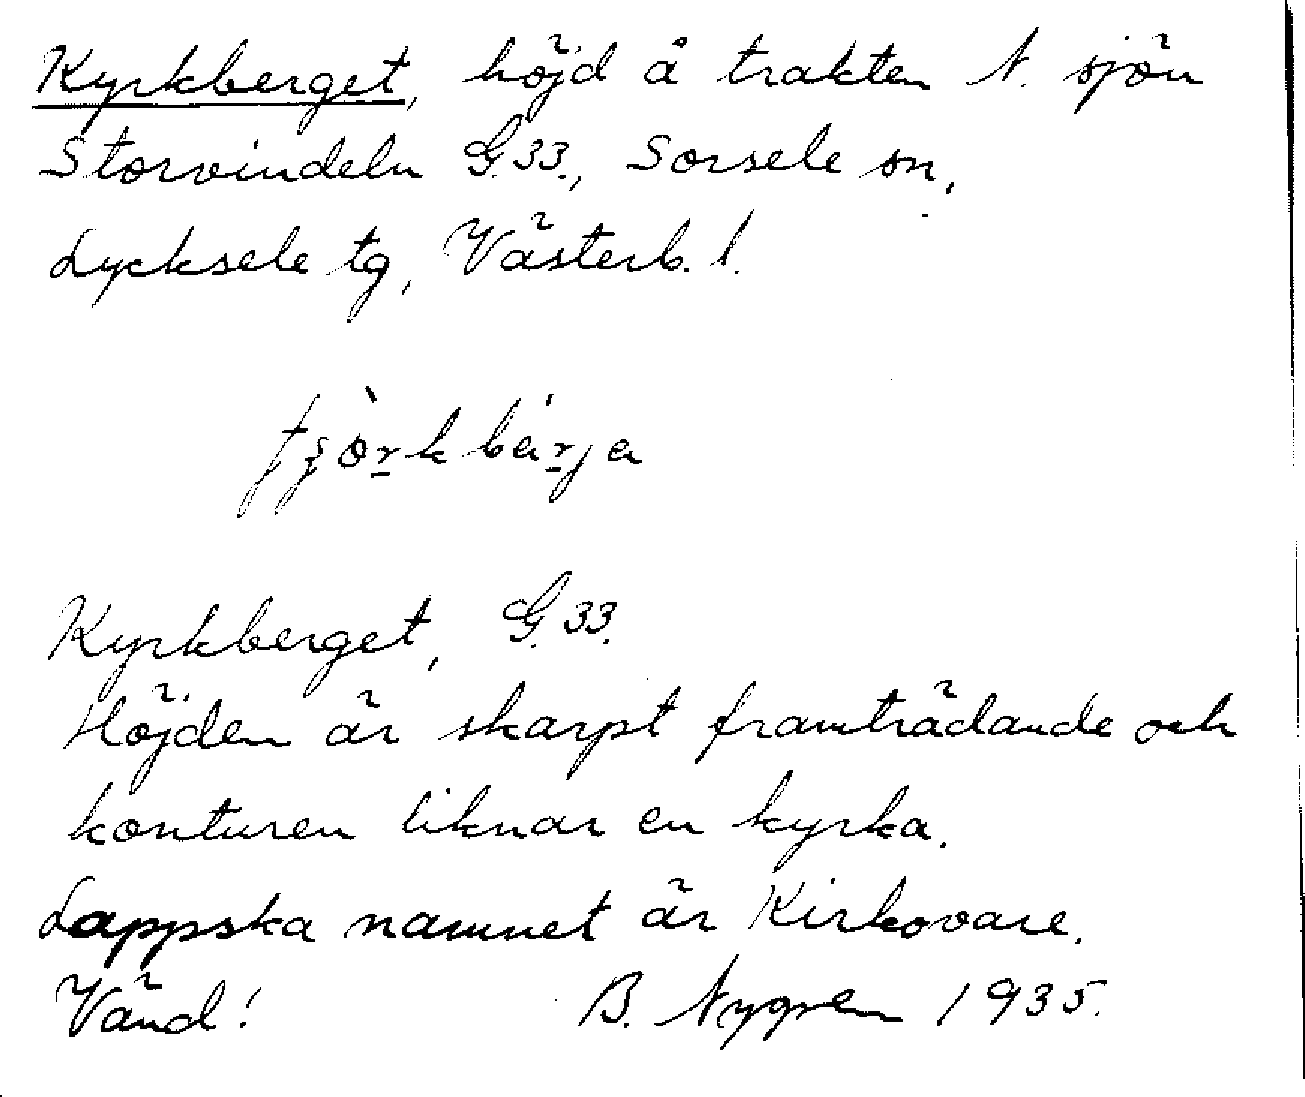 Kyrkberget, höjd å trakten N. sjön
Storvindeln G.33., Sorsele sn,
Lycksele tg, Västerb. l.
Kyrkberget, G.33.
Höjden är skarpt framträdande och
konturen liknar en kyrka.
Lappska namnet är Kirkovare.
Vänd! B. Nygren 1935.